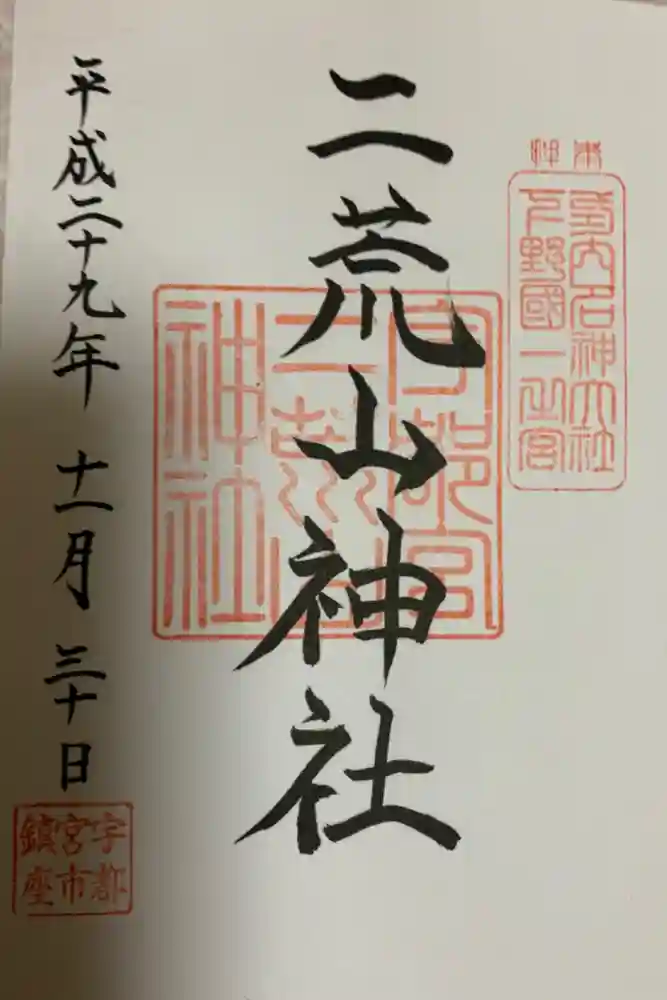 奉拝
式内名神大社
下野國一之宮
二荒山神社
宇都宮
二荒山
神社
平成二十九年 十一月 三十日
宇都
宮市
鎮座